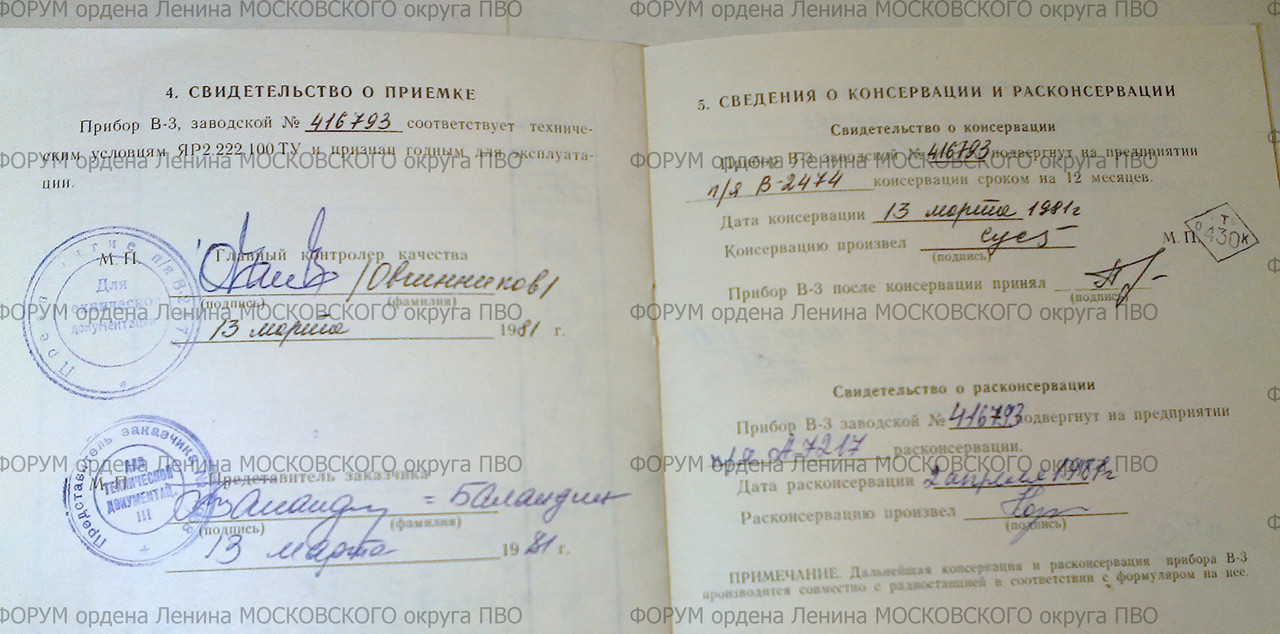 ФОРУМ ордена Ленина МОСКОВСКОГО округа ПВО ФОРУМ ордена Ленина МОСКОВСКОГО округа ПВО
4. СВИДЕТЕЛЬСТВО О ПРИЕМКЕ
Прибор В-3, заводской № 416793 соответствует техниче-
ским условиям ЯР2.222.100 ТУ и признан годным для эксплуата-
ции.
ФОРУМ ордена Ленина МОСКОВСКОГО округа ПВО
М. П.
Главный контролер качества
/Овчинников/
(подпись) (фамилия)
ФОРУМ ордена Ленина МОСКОВСКОГО округа ПВО
13 марта 1981 г.
Для
технической
документации
ФОРУМ ордена Ленина МОСКОВСКОГО округа ПВО
Представитель заказчика
ДЛЯ
ТЕХНИЧЕСКОЙ
ДОКУМЕНТАЦ.
III
М. П.
Представитель заказчика
= Баландин
(подпись) (фамилия)
13 марта 1981 г.
ФОРУМ ордена Ленина МОСКОВСКОГО округа ПВО
ФОРУМ ордена Ленина МОСКОВСКОГО округа ПВО
5. СВЕДЕНИЯ О КОНСЕРВАЦИИ И РАСКОНСЕРВАЦИИ
Свидетельство о консервации
Прибор В-3 заводской № 416793 подвергнут на предприятии
ФОРУМ ордена Ленина МОСКОВСКОГО округа ПВО
п/я В-2474 консервации сроком на 12 месяцев.
Дата консервации 13 марта 1981г
Консервацию произвел
(подпись)
М. П.
Т
430К
Прибор В-3 после консервации принял
(подпись)
ФОРУМ ордена Ленина МОСКОВСКОГО округа ПВО
Свидетельство о расконсервации
Прибор В-3 заводской № 416793 подвергнут на предприятии
п/я А-7217 расконсервации.
ФОРУМ ордена Ленина МОСКОВСКОГО округа ПВО
Дата расконсервации 2 апреля 1981г
Расконсервацию произвел
(подпись)
ПРИМЕЧАНИЕ. Дальнейшая консервация и расконсервация прибора В-3
производится совместно с радиостанцией в соответствии с формуляром на нее.
ФОРУМ ордена Ленина МОСКОВСКОГО округа ПВО